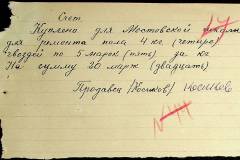 Счет
Куплено для Мостовской школы
для ремонта пола 4 кг. (четыре)
гвоздей по 5 марок (пять) за кг.
На сумму 20 марк (двадцать)
Продавец /Носиков/ Носиков
№44